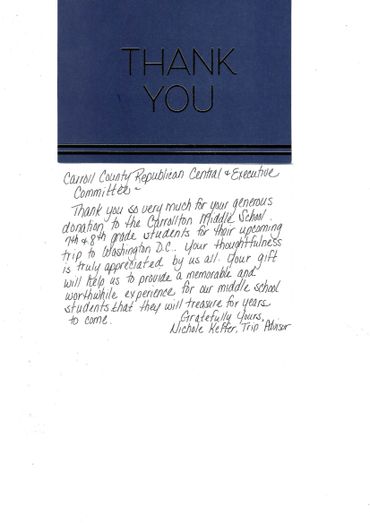 THANK
YOU
Carroll County Republican Central & Executive
Committee ~
Thank you so very much for your generous
donation to the Carrollton Middle School
7th & 8th grade students for their upcoming
trip to Washington D.C. Your thoughtfulness
is truly appreciated by us all. Your gift
will help us to provide a memorable and
worthwhile experience for our middle school
students that they will treasure for years
to come.
Gratefully Yours,
Nichole Keffer, Trip Advisor